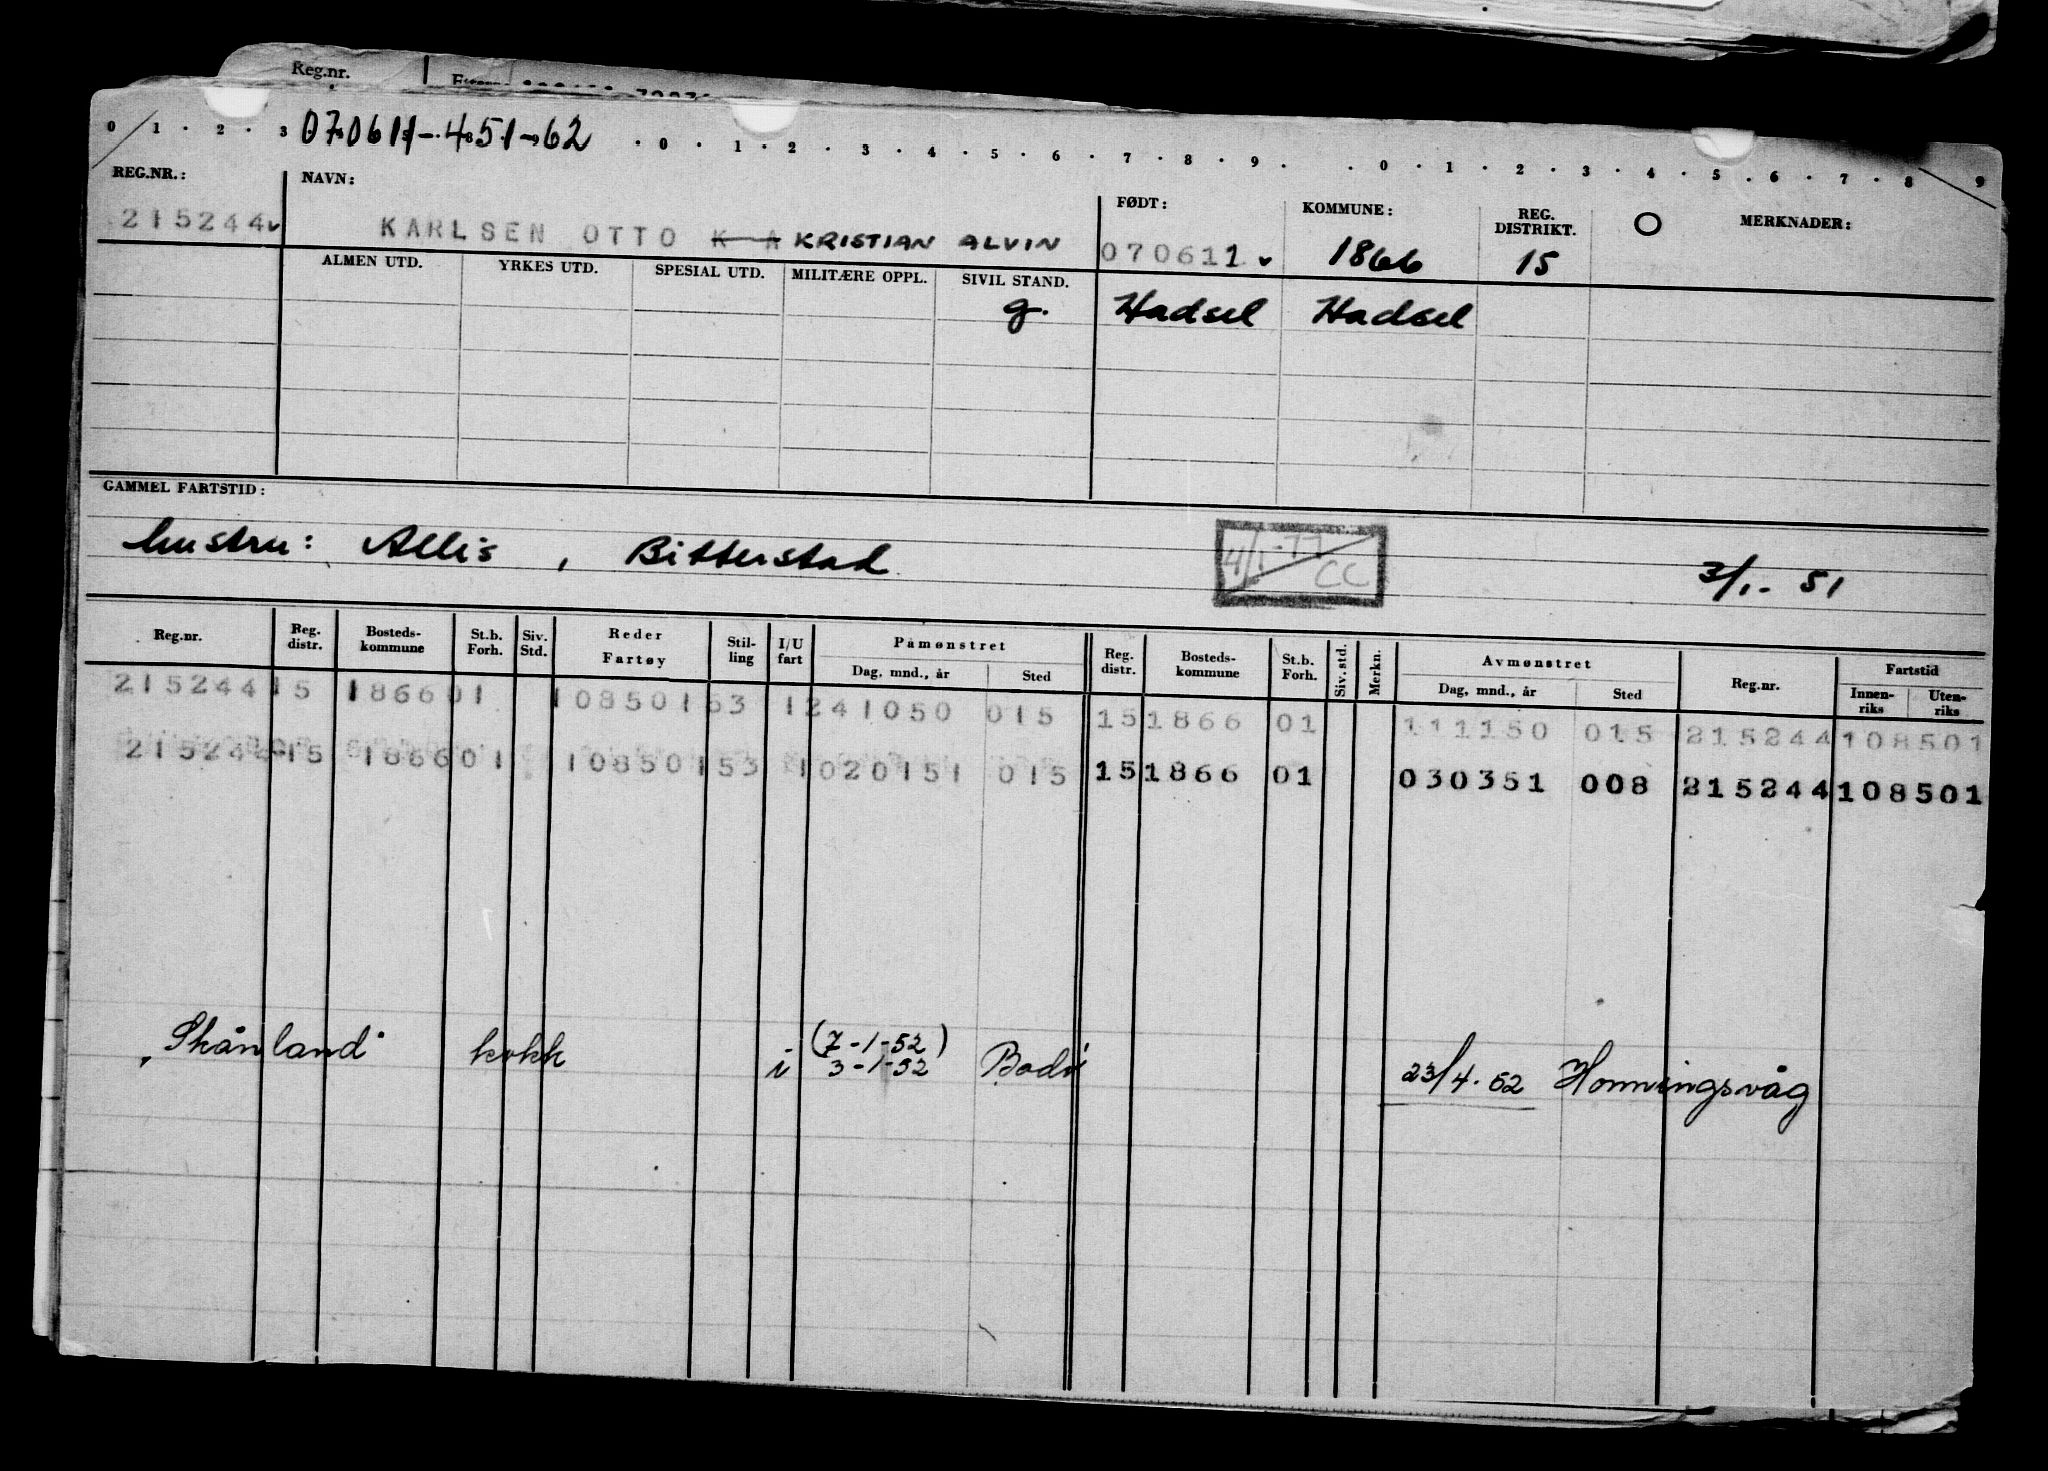 Reg.nr.
0 1 · 2 · 3 070611-451-62 · 0 · 1 · 2 · 3 · 4 · 5 · 6 · 7 · 8 · 9 · · 0 · 1 · 2 · 3 · 4 · 5 · 6 · 7 · 8 · 9
REG.NR.: NAVN: FØDT: KOMMUNE: REG. DISTRIKT. O MERKNADER:
215244 KARLSEN OTTO K A KRISTIAN ALVIN 070611 1866 15
ALMEN UTD. YRKES UTD. SPESIAL UTD. MILITÆRE OPPL. SIVIL STAND.
g. Hadsel Hadsel
GAMMEL FARTSTID:
hustru: Allis, Bitterstad 4/1-77 CC 3/1-51
Reg.nr. Reg. distr. Bosteds-kommune St.b. Forh. Siv. Std. Reder Fartøy Stil-ling I/U fart Påmønstret Reg. distr. Bosteds-kommune St.b. Forh. Siv. std. Merkn. Avmønstret Reg.nr. Fartstid
Dag, mnd., år Sted Dag, mnd., år Sted Innen-riks Uten-riks
215244 15 1866 01 108501 53 1 241050 015 15 1866 01 111150 015 215244 108501
215244 15 1866 01 108501 53 1 020151 015 15 1866 01 030351 008 215244 108501
"Skånland" kokk i (7-1-52) Bodø 23/4.52 Honningsvåg
3-1-52